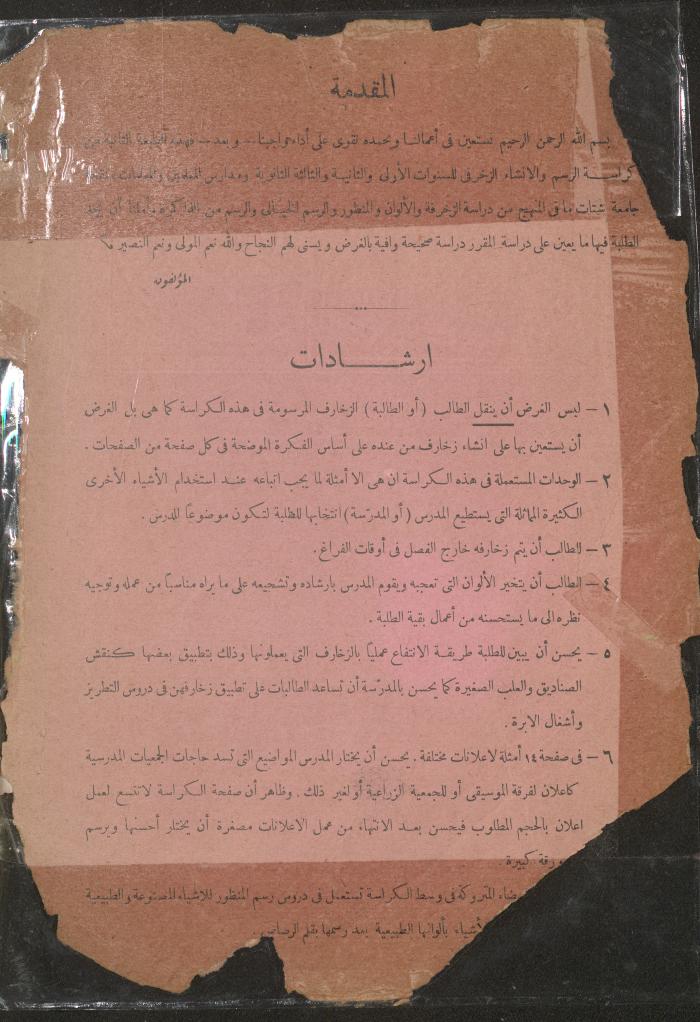 المقدمة
بسم الله الرحمن الرحيم نستعين فى أعمالنا ونحمده تقوى على أداء واجبنا — وبعد — فهذه الطبعة الثانية من
كراسة الرسم والانشاء الزخرفى للسنوات الأولى والثانية والثالثة الثانوية ومدارس المعلمين والمعلمات
جامعة شتات ما فى المنهج من دراسة الزخرفة والألوان والمنظور والرسم الخيالى والرسم من الذاكرة وأملنا أن يجد
الطلبة فيها ما يعين على دراسة المقرر دراسة صحيحة وافية بالغرض ويسنى لهم النجاح والله نعم المولى ونعم النصير
المؤلفون
ارشادات
١ — ليس الغرض أن ينقل الطالب (أو الطالبة) الزخارف المرسومة فى هذه الكراسة كما هى بل الغرض
أن يستعين بها على انشاء زخارف من عنده على أساس الفكرة الموضحة فى كل صفحة من الصفحات .
٢ — الوحدات المستعملة فى هذه الكراسة ان هى الا أمثلة لما يجب اتباعه عند استخدام الأشياء الأخرى
الكثيرة المماثلة التى يستطيع المدرس (أو المدرّسة) انتخابها للطلبة لتكون موضوعًا للدرس .
٣ — للطالب أن يتم زخارفه خارج الفصل فى أوقات الفراغ.
٤ — للطالب أن يتخير الألوان التى تعجبه ويقوم المدرس بارشاده وتشجيعه على ما يراه مناسبًا من عمله وتوجيه
نظره الى ما يستحسنه من أعمال بقية الطلبة .
٥ — يحسن أن يبين للطلبة طريقة الانتفاع عمليًا بالزخارف التى يعملونها وذلك بتطبيق بعضها كنقش
الصناديق والعلب الصغيرة كما يحسن بالمدرّسة أن تساعد الطالبات على تطبيق زخارفهن فى دروس التطريز
وأشغال الابرة .
٦ — فى صفحة ١٤ أمثلة لاعلانات مختلفة . يحسن أن يختار المدرس المواضيع التى تسد حاجات الجمعيات المدرسية
كاعلان لفرقة الموسيقى أو للجمعية الزراعية أو لغير ذلك . وظاهر أن صفحة الكراسة لا تتسع لعمل
اعلان بالحجم المطلوب فيحسن بعد الانتهاء من عمل الاعلانات مصغرة أن يختار أحسنها ويرسم
ورقة كبيرة .
المتروكة فى وسط الكراسة تستعمل فى دروس رسم المنظور للأشياء المصنوعة والطبيعية
أشياء بألوانها الطبيعية بعد رسمها بقلم الرصاص .